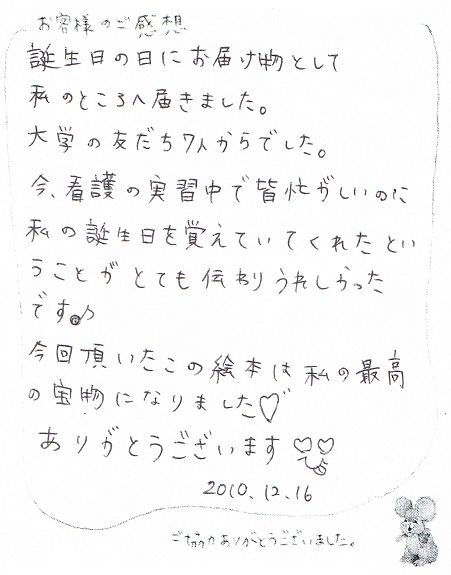 お客様のご感想
誕生日の日にお届け物として
私のところへ届きました。
大学の友だち7人からでした。
今、看護の実習中で皆忙がしいのに
私の誕生日を覚えていてくれたとい
うことがとても伝わりうれしかった
です♪
今回頂いたこの絵本は私の最高
の宝物になりました♡
ありがとうございます♡♡
2010.12.16
ご協力ありがとうございました。